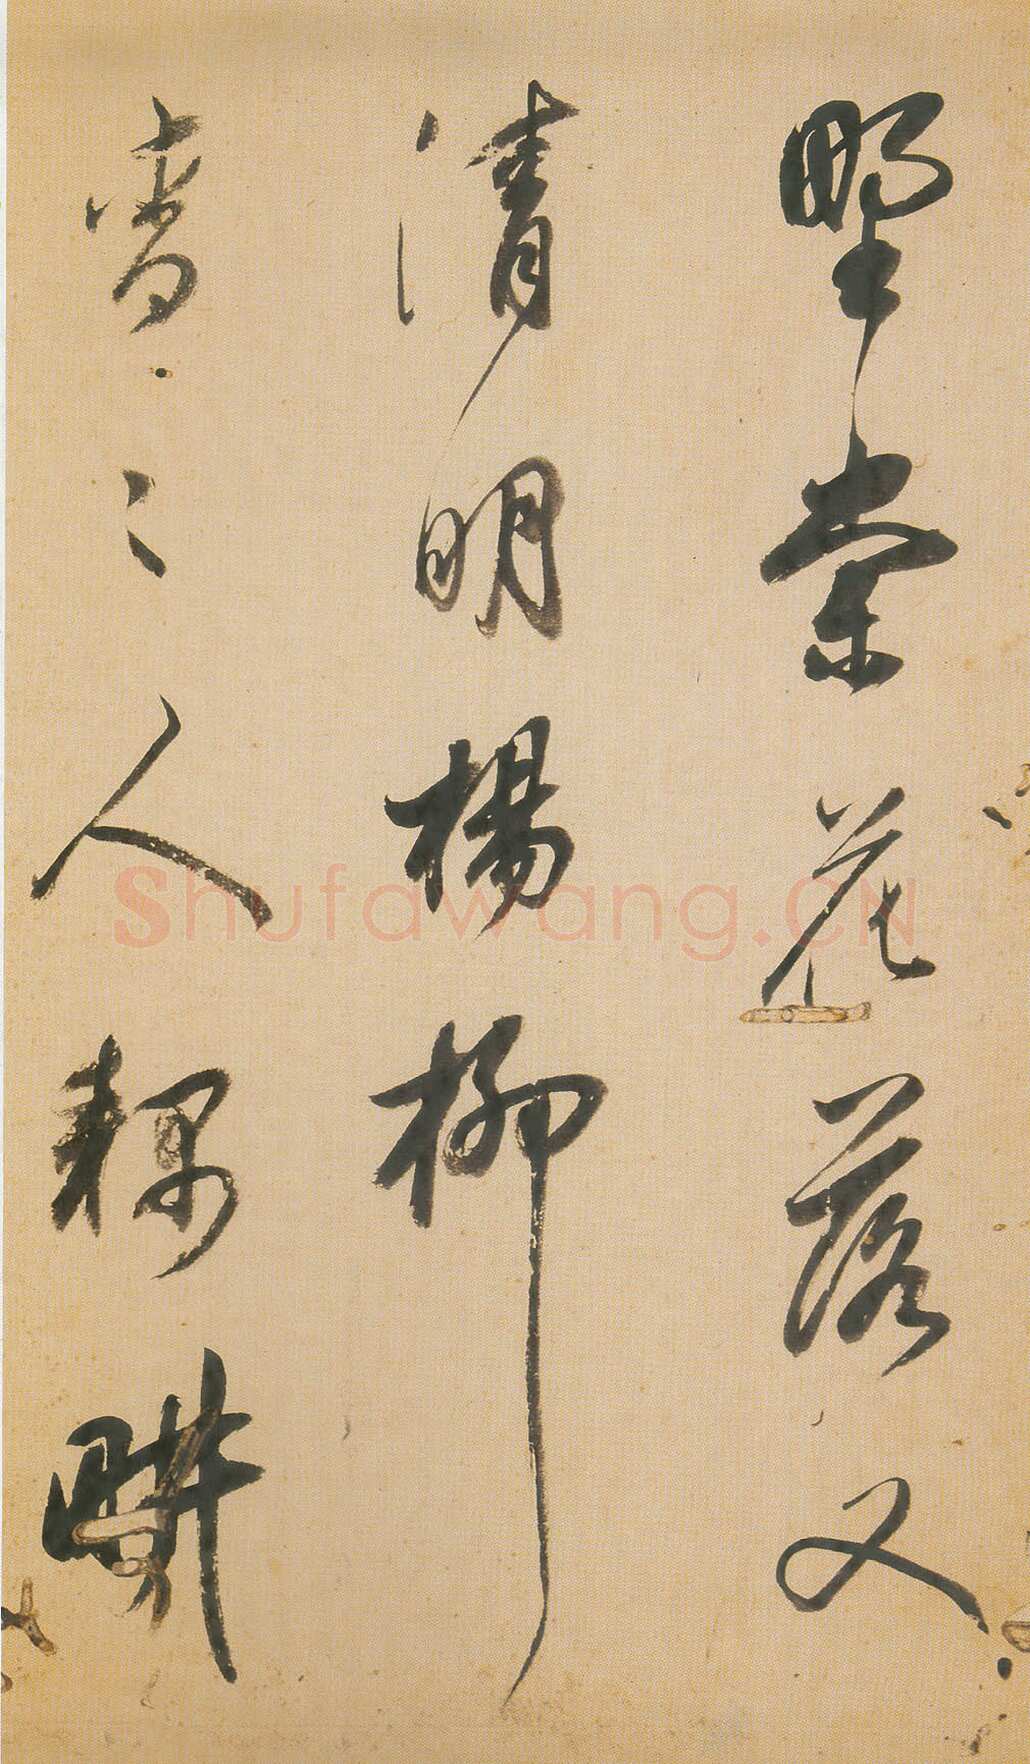 野棠花落又
清明楊柳
青〻人耦畊
Shufawang.CN